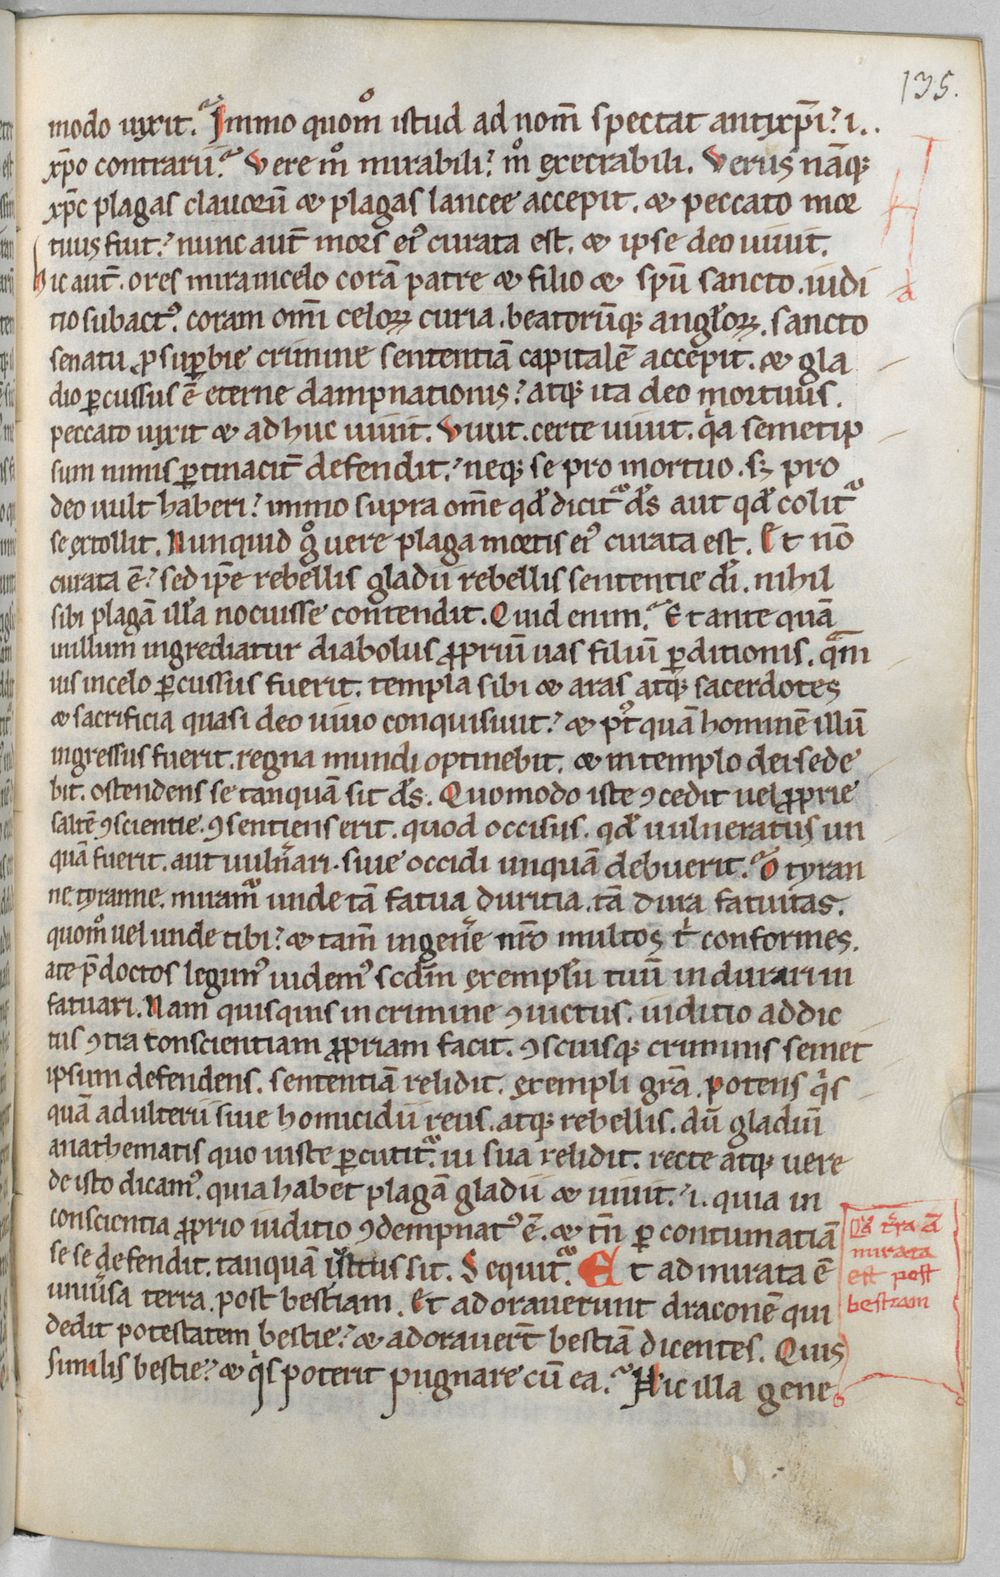 135.
modo uixit. Immo quom̊ istud ad nom̄ spectat antixp̄i? .i.
xp̄o contrarii? Vere m̊ mirabili? m̊ execrabili. Verus nāq;
xp̄c plagas clauorū & plagas lancee accepit. & peccato mor
tuus fuit? nunc aut̄ mors ei᾽ curata est. & ipse deo uiuit.
hic aut̄. ores mira incelo corā patre & filio & spū sancto. iudi
tio subact᾽. coram om̄i celoꝝ curia. beatorūq; angłoꝝ. sancto
senatu ꝓ suꝑbie crimine sententiā capitalē accepit. & gla
dio ꝑcussus ē eterne dampnationis? atq; ita deo mortuus.
peccato uixit & ad huc uiuit. Viuit. certe uiuit. qͣa semetip
sum nimis ꝑtinacit̄ defendit? neq; se pro mortuo. sꝫ pro
deo uult haberi? immo supra om̄e qđ dicit᷑ d̄s aut qđ colit᷑
se extollit. Nunquid g̊ uere plaga mortis ei᾽ curata est. Et nō
curata ē? sed ip̄e rebellis gladii rebellis sententie d̄i. nihil
sibi plagā illā nocuisse contendit. Quid enim? Et ante quā
uillum ingrediatur diabolus ꝓpriū uas filiū ꝑditionis. qͣm
uis incelo ꝑcussus fuerit. templa sibi & aras atq; sacerdotes
& sacrificia quasi deo uiuo conquisiuit? & p᾽t quā hominē illū
ingressus fuerit. regna mundi optinebit. & in templo dei sede
bit. ostendens se tanquā sit d̄s. Quomodo iste ꝯcedit uel ꝓprie
saltē ꝯscientie. ꝯsentiens erit. quod occisus. qđ uulneratus un
quā fuerit. aut uuln̄ari. siue occidi unquā debuerit? O tyran
ne. tyranne. miram᷑ unde tā fatua duritia. tā dura fatuitas.
quom̊ uel unde tibi? & tam̄ ingen̄e nr̄o multos t͛ conformes.
ate p̄doctos legim᾽ uidem᾽ scd̄m exemplū tuū indurari in
fatuari. Nam quisquis in crimine ꝯuictus. iuditio addic
tus ꝯtra conscientiam ꝓpriam facit. ꝯsciusq; criminis semet
ipsum defendens. sententiā relidit. exempli gr̄a. potens qͥs
quā adulterii siue homicidii reus. atq; rebellis. dū gladiū
anathematis quo iuste ꝑcutit᷑. in sua relidit. recte atq; uere
de isto dicam᾽. quia habet plagā gladii & uiuit? .i. quia in
conscientia ꝓprio iuditio ꝯdempnat᾽ ē. & tn̄ per contumatiā
se se defendit. tanquā iustus sit. Sequit᷑. Et admirata ē
uniūsa terra. post bestiam. Et adorauerunt draconē qui
dedit potestatem bestie? & adorauer̄t bestiā dicentes. Quis
similis bestie? & qͥs poterit pugnare cū ea? Hic illa gene
t͛ra ā
mirata
est post
bestiam